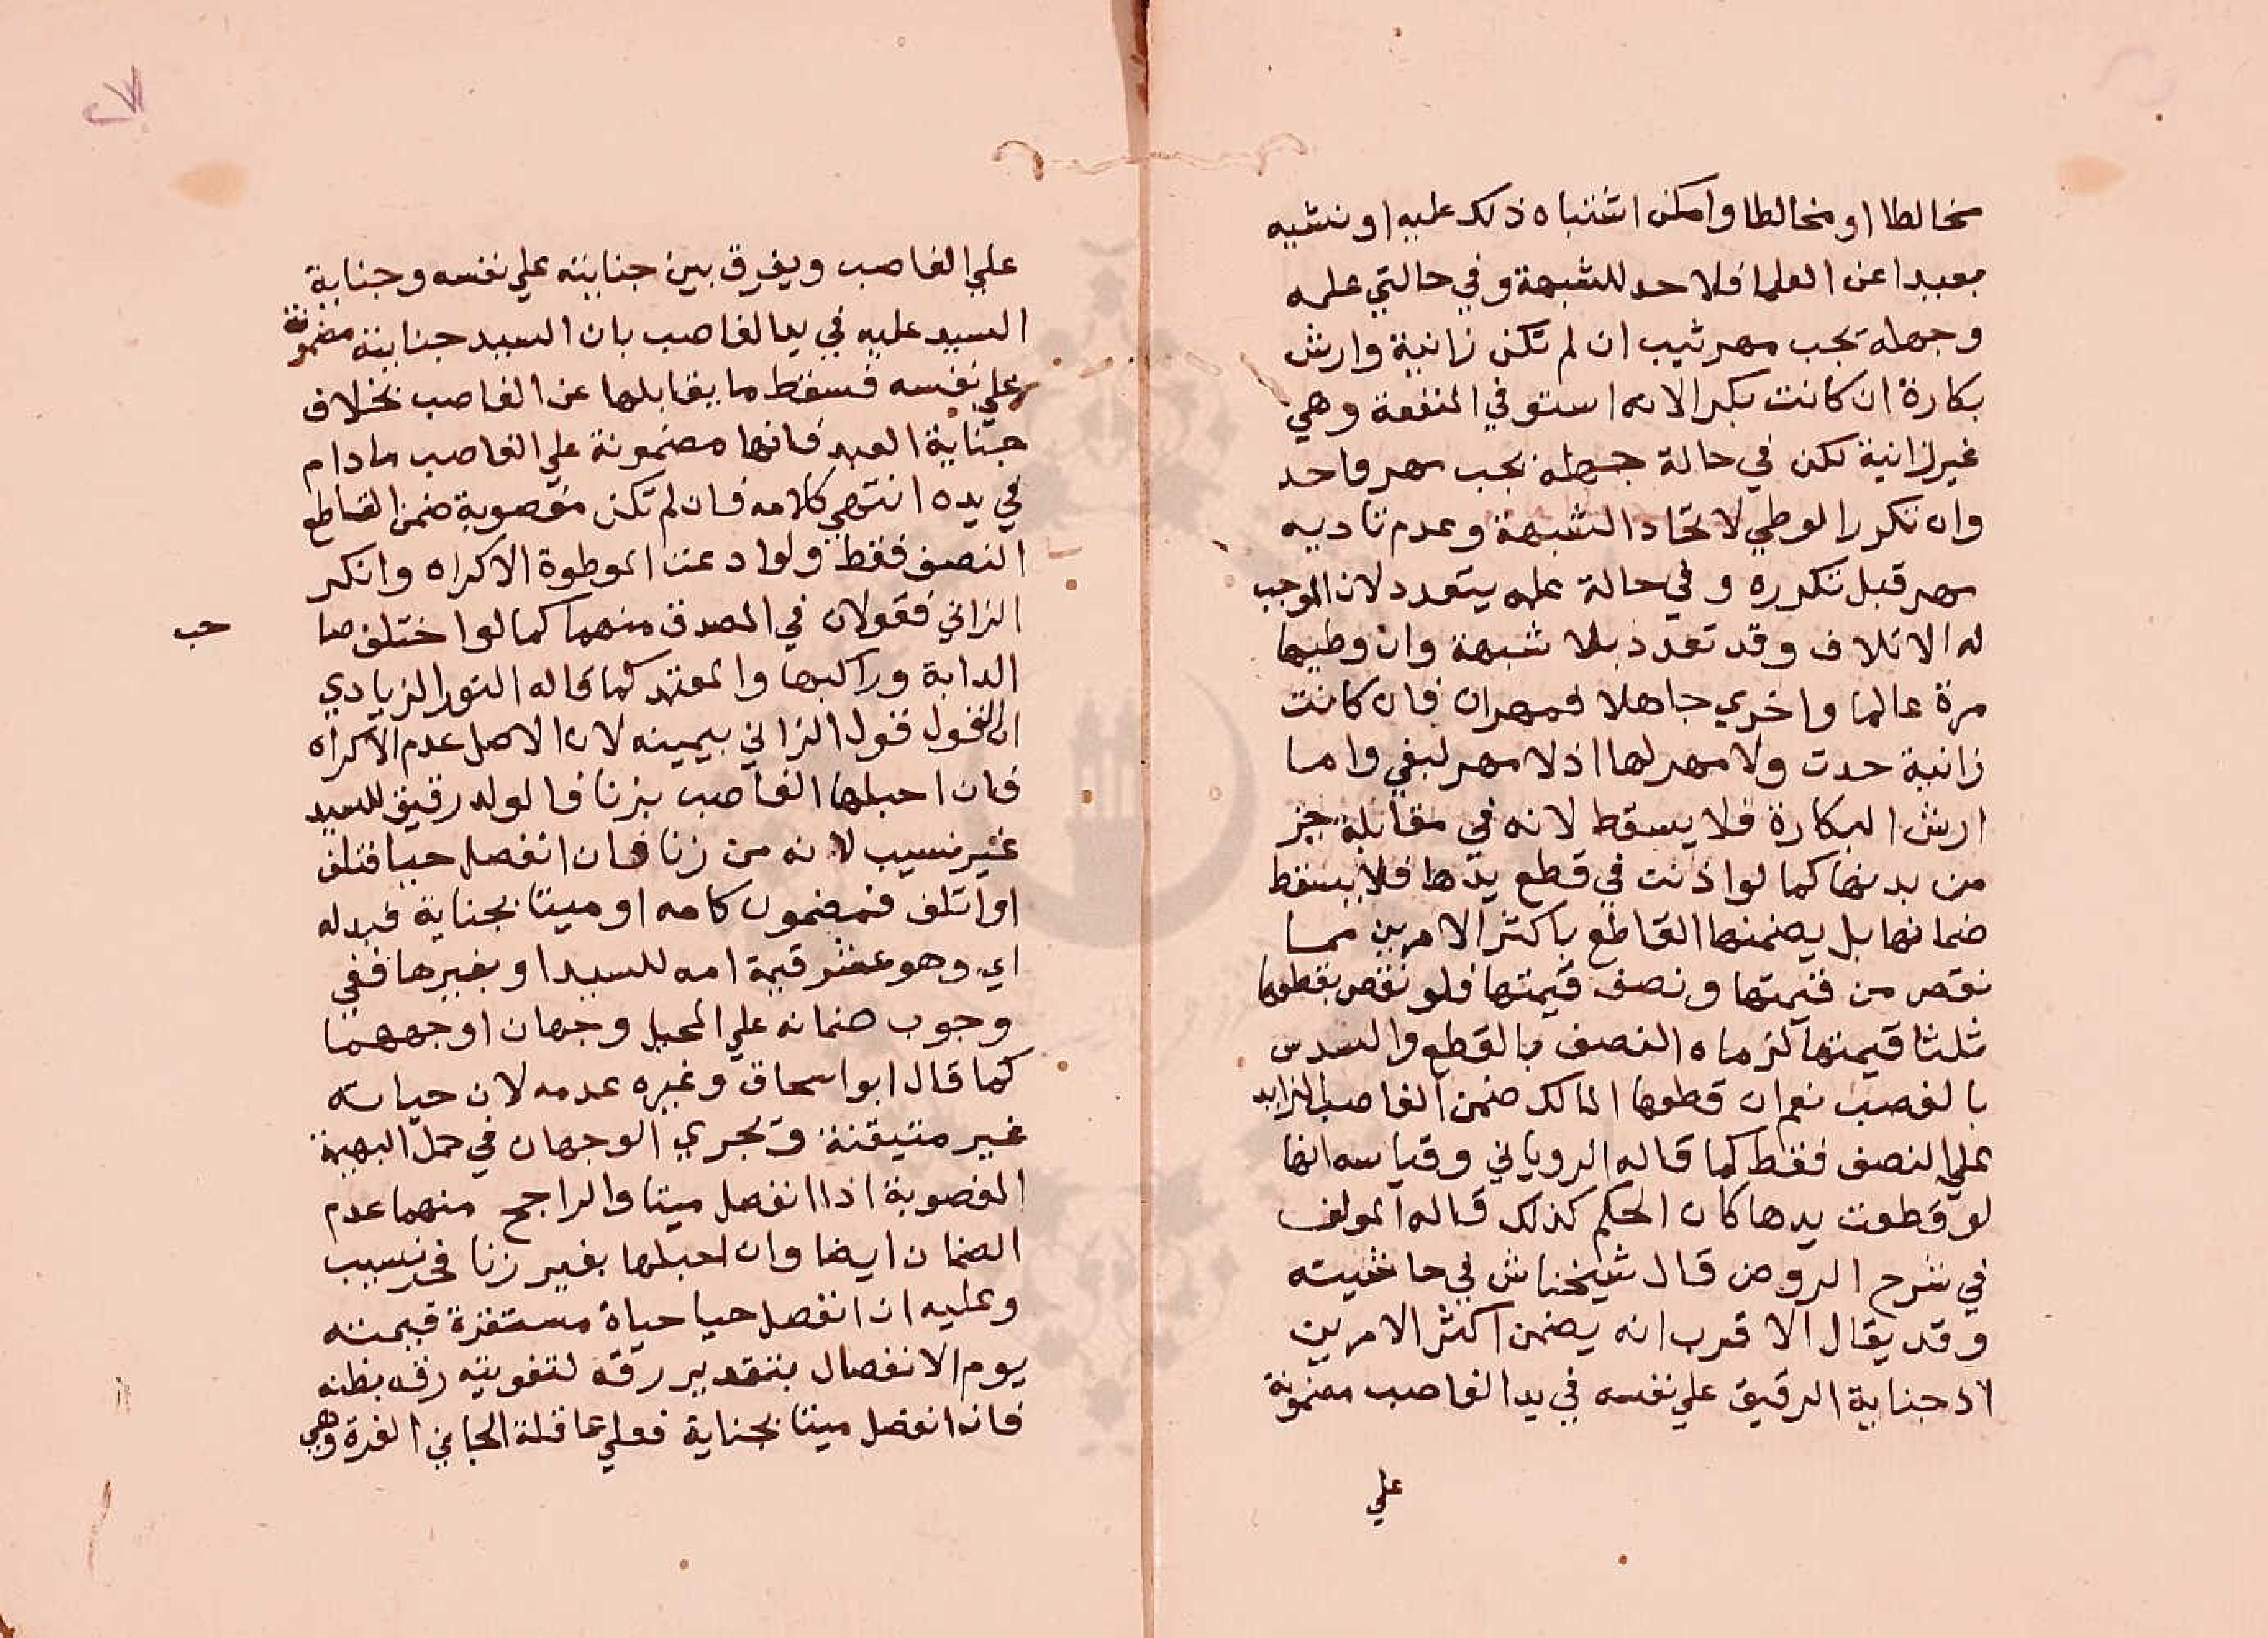 مخالطا او مخالطا وامكن اشتباه ذلك عليه او نشيه
بعيدا عن العلما فلا حد للشبهة وفي حالتي علمه
وجهله يجب مهر ثيب ان لم تكن زانية وارش
بكارة ان كانت بكرا لانه استوفي المنفعة وهي
غير زانية لكن في حالة جهله يجب مهر واحد
وان تكرر الوطي لاتحاد الشبهة وعدم تاديه
مهر قبل تكرره وفي حالة علمه يتعدد لان الموجب
له الاتلاف وقد تعدد بلا شبهة وان وطيها
مرة عالما واخري جاهلا فمهران فان كانت
زانية حدت ولا مهر لها اذ لا مهر لبغي واما
ارش البكارة فلا يسقط لانه في مقابلة جز
من بدنها كما لو اذنت في قطع يدها فلا يسقط
ضمانها بل يضمنها القاطع باكثر الامرين مما
نقص من قيمتها ونصف قيمتها فلو نقص بقطعها
ثلثا قيمتها لزماه النصف بالقطع والسدس
بالغصب نعم ان قطعها المالك ضمن الغاصب الزايد
علي النصف فقط كما قاله الروياني وقياسه انها
لو قطعت يدها كان الحكم كذلك قاله المولف
في شرح الروض قال شيخنا ش في حاشيته
وقد يقال الاقرب انه يضمن اكثر الامرين
اذ جناية الرقيق علي نفسه في يد الغاصب مضمونة
علي
علي الغاصب ويفرق بين جنايته علي نفسه وجناية
السيد عليه في يد الغاصب بان السيد جنايته مضمونة
علي نفسه فسقط ما يقابلها عن الغاصب بخلاف
جناية العبد فانها مضمونة علي الغاصب مادام
في يده انتهي كلامه فان لم تكن مغصوبة ضمن القاطع
النصف فقط ولو ادعت الموطوة الاكراه وانكر
الزاني فقولان في المصدق منهما كما لو اختلف صا
حب
الدابة وراكبها والمعتمد كما قاله النور الزيادي
ان القول قول الزاني بيمينه لان الاصل عدم الاكراه
فان احبلها الغاصب بزنا فالولد رقيق للسيد
غير نسيب لانه من زنا فان انفصل حيا فتلف
او اتلف فمضمون كامه او ميتا بجناية فبدله
اي وهو عشر قيمة امه للسيد او بغيرها ففي
وجوب ضمانه علي المحبل وجهان اوجههما
كما قال ابو اسحاق وغيره عدمه لان حياته
غير متيقنة ويجري الوجهان في حمل البهيمة
المغصوبة اذا انفصل ميتا والراجح منهما عدم
الضمان ايضا وان احبلها بغير زنا فحر نسيب
وعليه ان انفصل حيا حياة مستقرة قيمته
يوم الانفصال بتقدير رقه لتفويته رقه بظنه
فانه انفصل ميتا بجناية فعلي عاقلة الجاني الغرة وهي